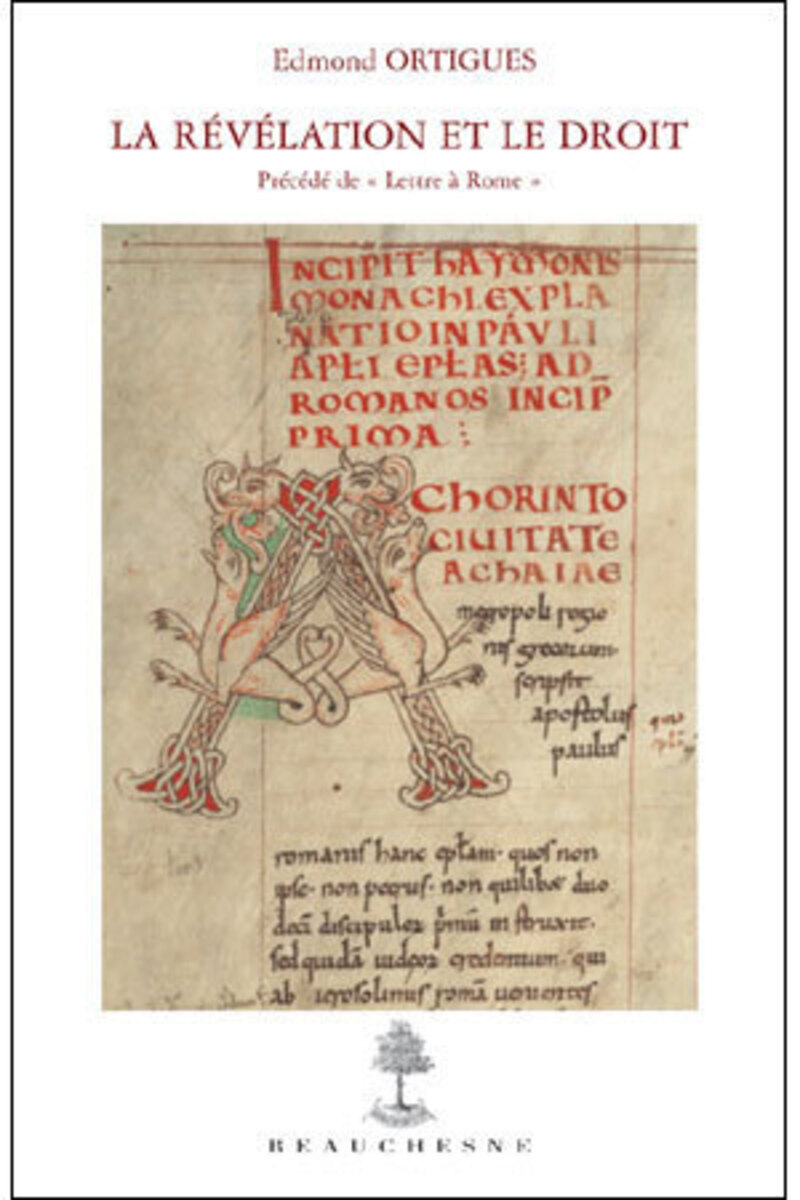 Edmond ORTIGUES
LA RÉVÉLATION ET LE DROIT
Précédé de « Lettre à Rome »
INCIPIT hAYMONIS
MONAChI.EXPLA
NATIO IN PÁVLI
APŁI EPŁAS; AD
ROMANOS INCIP̄
PRIMA :
A ChORINTO
CIUITATE
AChAIAE
metropoli regio
nis grecorum
scripsit
apostolus
paulus
romanis hanc epłam. quos non
ipse. non petrus. non quilibet duo
decī discipulor̄ p̄mū instruxit.
sed quidā iudeor̄ credentium. qui
ab ierosolimis romā uenientes
BEAUCHESNE